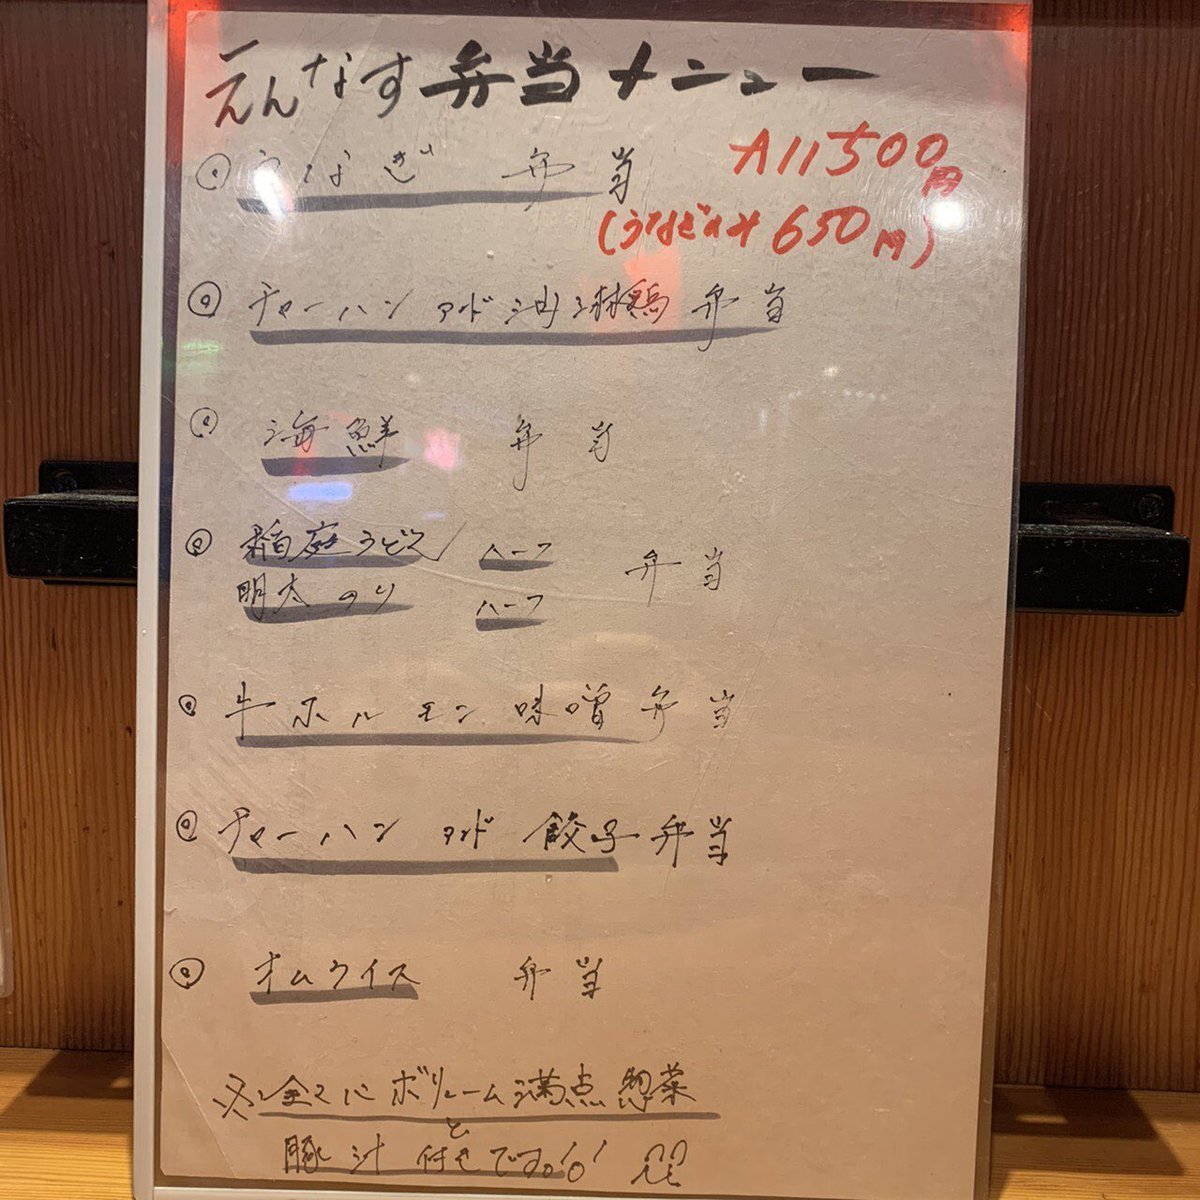 えんなす弁当メニュー
All500円
◎うなぎ 弁当
(うなぎのみ650円)
◎チャーハン アンド 油淋鶏 弁当
◎海鮮 弁当
◎稲庭うどん ハーフ
明太のり ハーフ 弁当
◎牛ホルモン味噌弁当
◎チャーハン アンド 餃子弁当
◎オムライス 弁当
※全てにボリューム満点惣菜
と
豚汁 付きです!!